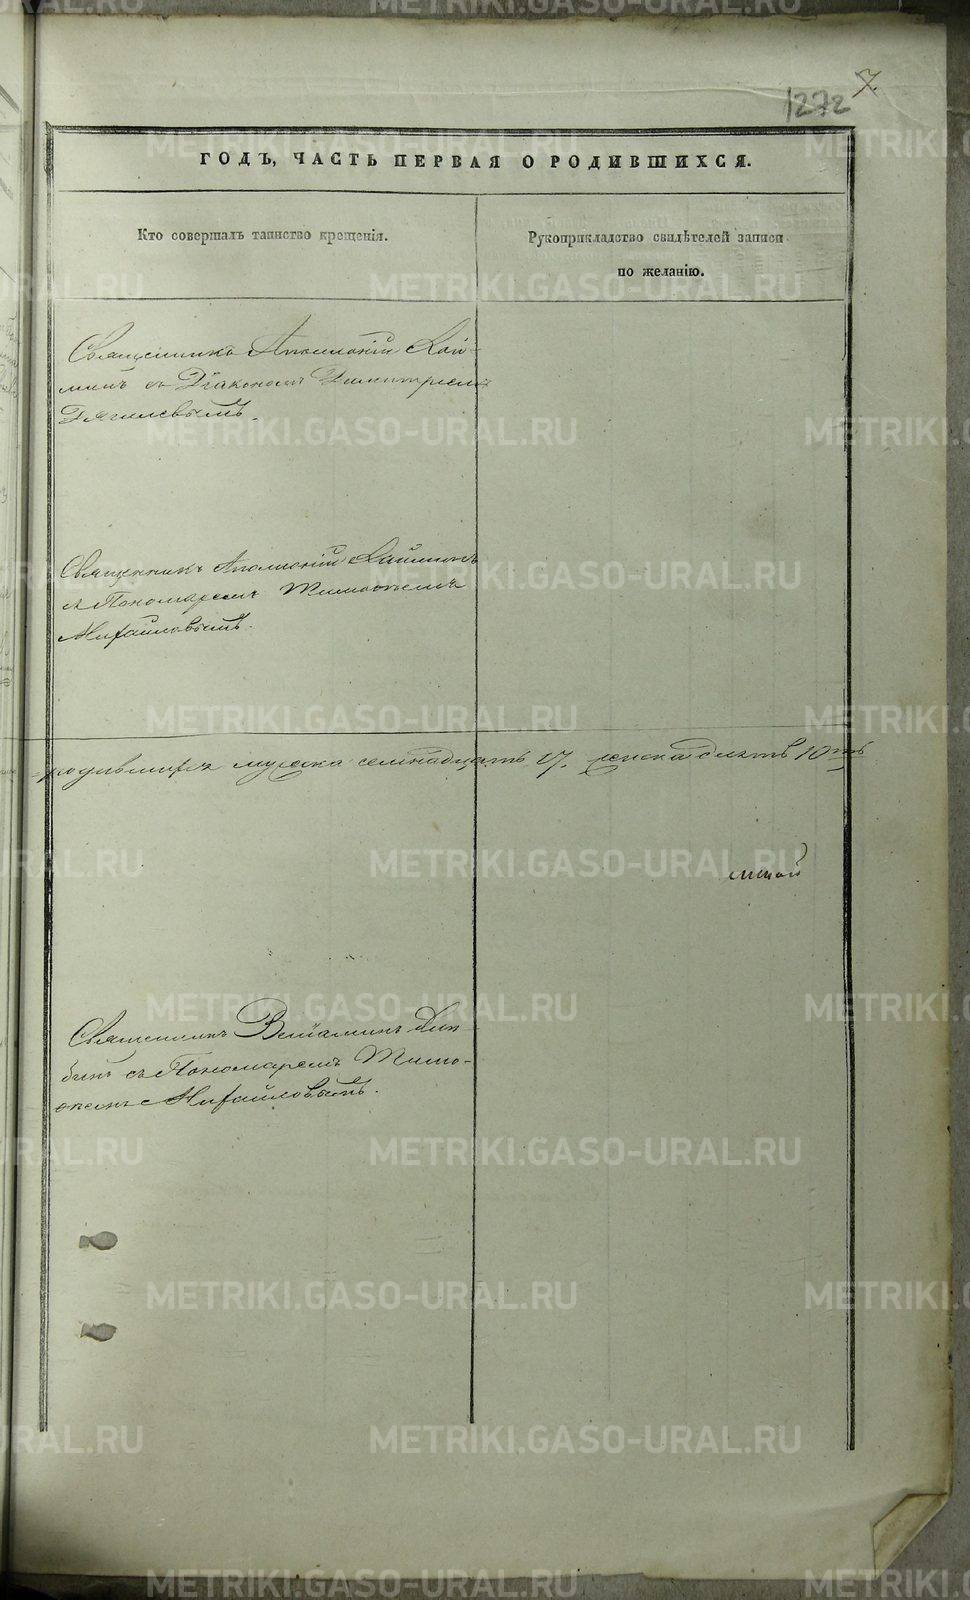 7.
1272
ГОДЪ, ЧАСТЬ ПЕРВАЯ О РОДИВШИХСЯ.
Кто совершалъ таинство крещенія.
Рукоприкладство свидѣтелей записи
по желанію.
Священникъ Аполлоній
съ Діакономъ Димитріемъ
Дягилевымъ.
Священникъ Аполлоній
съ Пономаремъ Тимоѳеемъ
Михайловымъ.
родившихся мужеска семнадцать 17. женска десять 10ть
Священникъ Веніаминъ
съ Пономаремъ Тимо-
ѳеемъ Михайловымъ.
METRIKI.GASO-URAL.RU